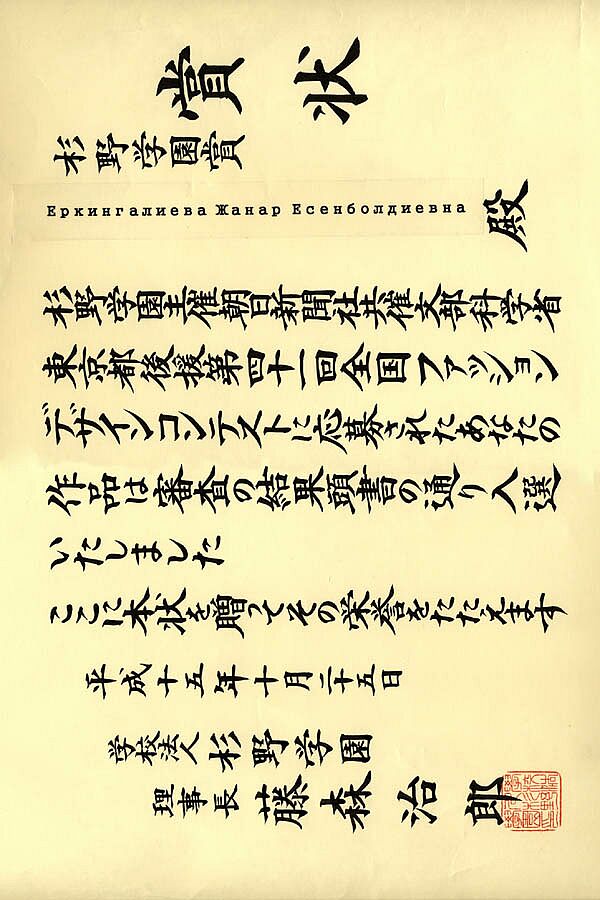 賞状
杉野学園賞
Еркингалиева Жанар Есенболдиевна 殿
杉野学園主催朝日新聞社共催文部科学省
東京都後援第四十一回全国ファッション
デザインコンテストに応募されたあなたの
作品は審査の結果頭書の通り入選
いたしました
ここに本状を贈ってその栄誉をたたえます
平成十五年十月二十五日
学校法人杉野学園
理事長 藤森治郎